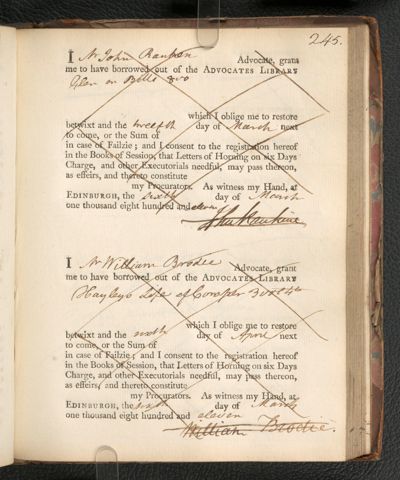 245.
I Mr John Rankin Advocate, grant
me to have borrowed out of the ADVOCATES LIBRARY
Glen on Bills 8vo
which I oblige me to restore
betwixt and the twelfth day of March next
to come, or the Sum of
in case of Failzie; and I consent to the registration hereof
in the Books of Session, that Letters of Horning on six Days
Charge, and other Executorials needful, may pass thereon,
as effeirs, and thereto constitute
my Procurators. As witness my Hand, at
EDINBURGH, the sixth day of March
one thousand eight hundred and eleven
I Mr William Brodie Advocate, grant
me to have borrowed out of the ADVOCATES LIBRARY
Hayley's Life of Cowper 3 vol 4to
which I oblige me to restore
betwixt and the sixth day of April next
to come, or the Sum of
in case of Failzie; and I consent to the registration hereof
in the Books of Session, that Letters of Horning on six Days
Charge, and other Executorials needful, may pass thereon,
as effeirs, and thereto constitute
my Procurators. As witness my Hand, at
EDINBURGH, the sixth day of March
one thousand eight hundred and eleven
William Brodie.